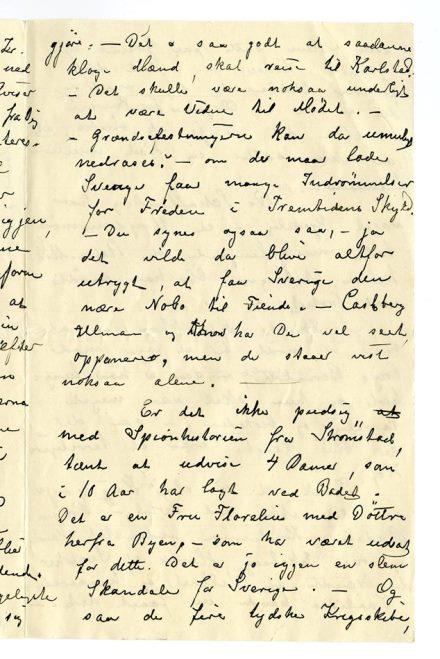 gjøre. — Det er saa godt at saadanne
kloge Mænd, skal reise til Karlstad.
— Det skulle være noksaa underligt
at være Vidne til Mødet. —
— Grændsefestningerne kan da umulig
nedrases? — om der maa lade
Sverige faa mange Indrömmelser
for Freden i Fremtidens Skyld.
— Du synes ogsaa saa, — ja
det vilde da blive altfor
utrygt, at faa Sverige den
nære Nabo til Fiende. — Castberg
Ullman og har Du vel seet,
opponerer, men de staaer vist
noksaa alene.
Er det ikke pudsig at
med Spionhistorien fra Strömstad,
tænk at udvise 4 Damer, som
i 10 Aar har ligt ved Badet.
Det er en Fru Florelius med Döttre
herfra Byen, — som har været udsat
for dette. Det er jo igjen en slem
Skandale for Sverige. — Og
saa de fire tydske Krigsskibe,
ned
fra Dig
igjen,
form
at
efter